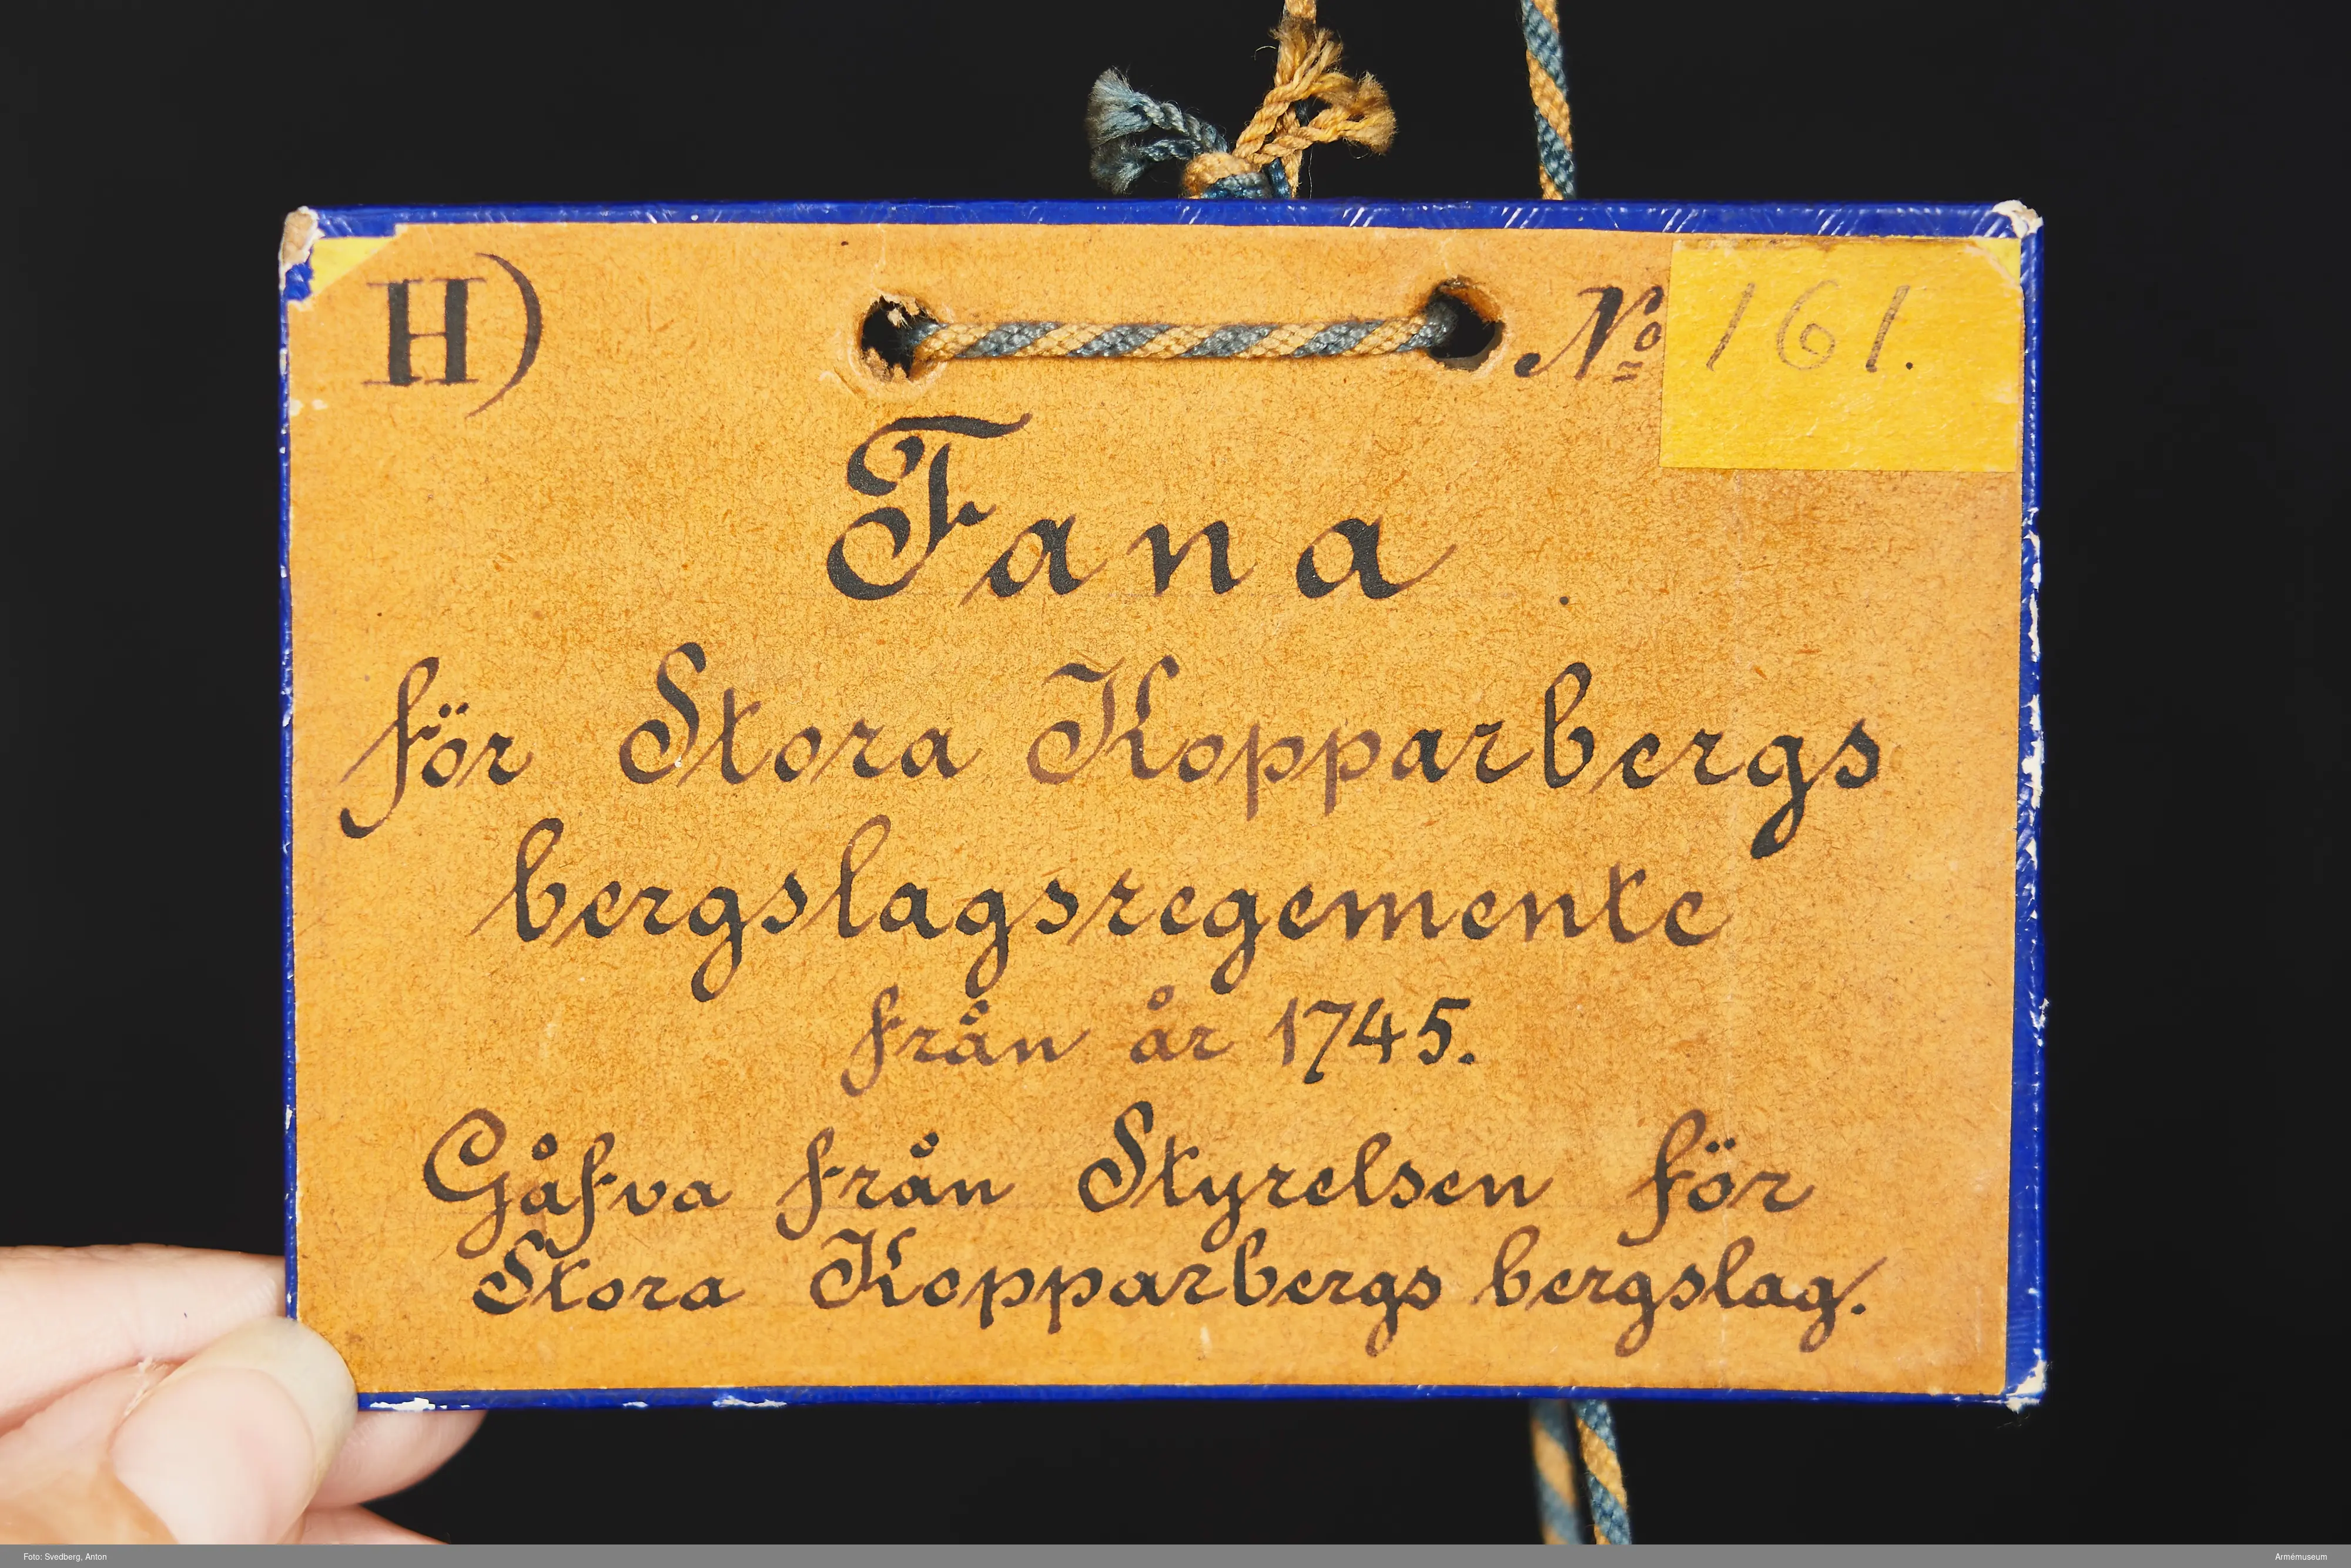 H)
Nº 161.
Fana
för Stora Kopparbergs
bergslagsregemente
från år 1745.
Gåfva från Styrelsen för
Stora Kopparbergs bergslag.
Foto: Svedberg, Anton
Armémuseum